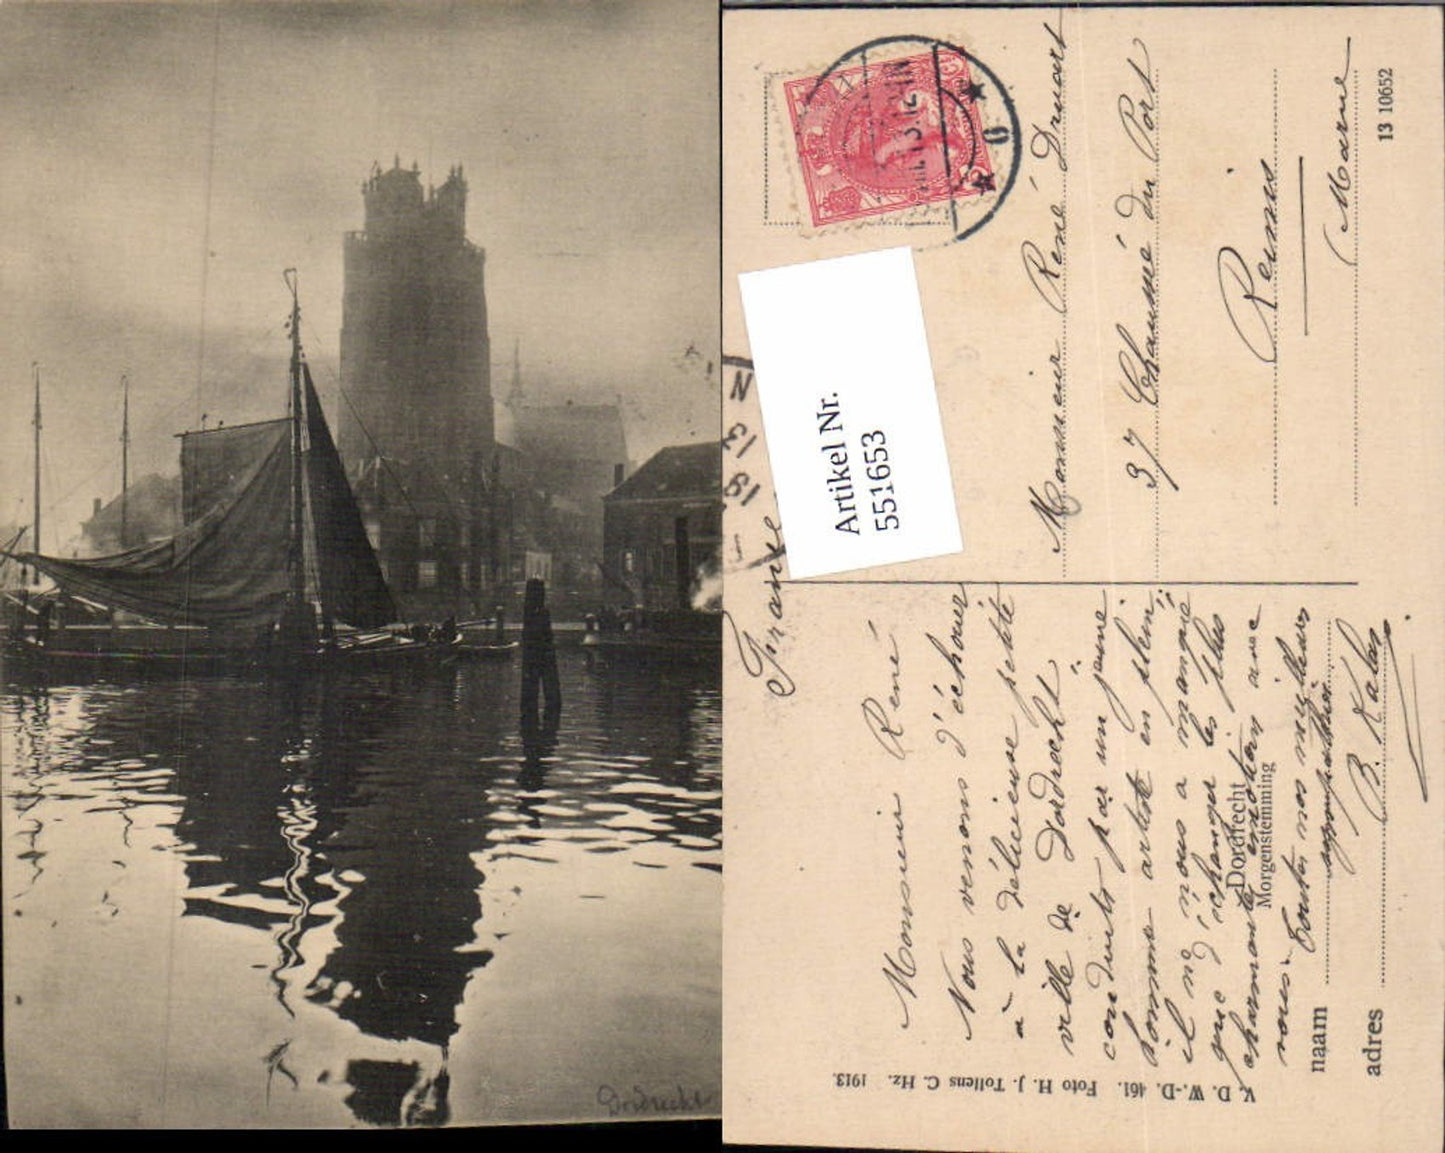 Dordrecht
Artikel Nr.
551653
France
Monsieur René Druart
37 Chaussée du Port
Reims
Marne
13 10652
Monsieur René
Nous venons d'échouer
à la délicieuse petite
ville de Dordrecht
conduits par un jeune
homme artiste en plein
il ne nous a mangé
que d'échanger les plus
charmante
vous. Toutes nos meilleurs
B. Kalas
Dordrecht
Morgenstemming
naam
adres
V. D. W.-D. 461. Foto H. J. Tollens C. Hz. 1913.